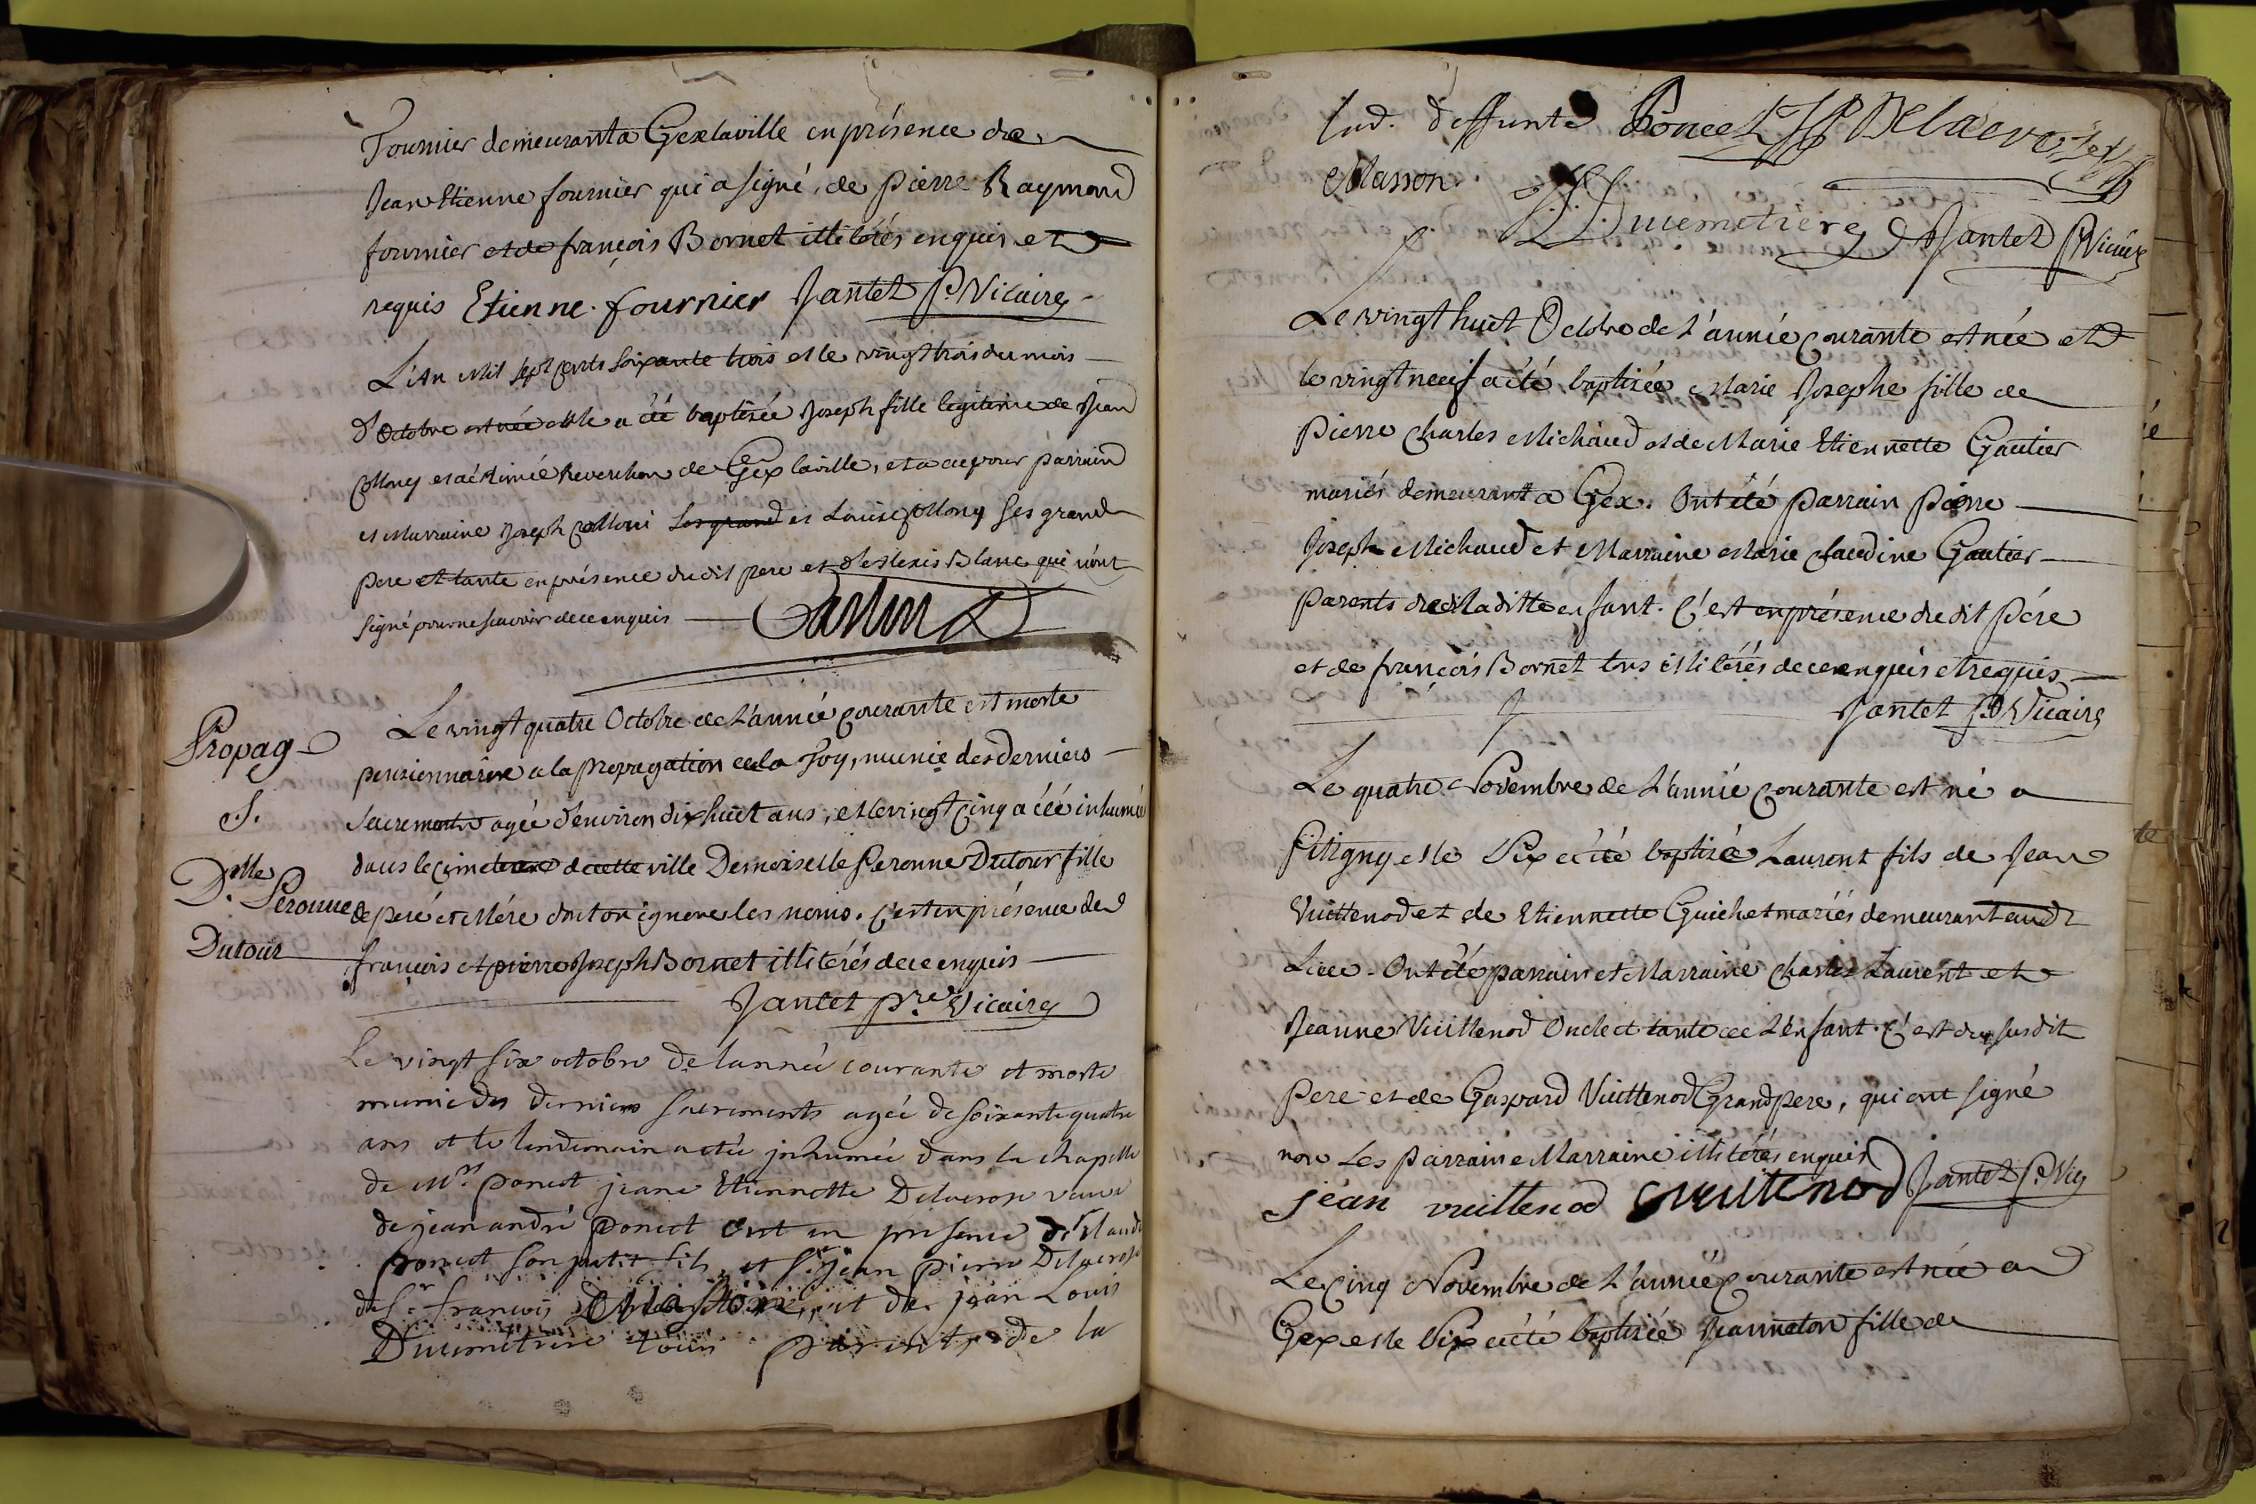 Fournier demeurant a Gex la ville en présence de
Jean Etienne fournier qui a signé, de pierre Raymond
fournier et de françois Bornet illitérés enquis et
requis Etienne fournier Jantet P. Vicaire
L'An Mil sept cents soixante trois et le vingt trois du mois
d'Octobre est née et le a été baptisée Joseph fille legitime de Jean
Collony et Reverchon de Gex la ville, et a eu pour parrain
et Marraine Joseph Colloni ses grand et Louise Collony ses grand
pere et tante en présence dudit pere et d'Alexis Blanc qui n'ont
signé pour ne scavoir de ce enquis
Le vingt quatre Octobre de L'année courante est morte
pensionnaire a la propagation de la Foy, munie des derniers
Propag
sacrements agée d'environ dix huit ans, et le vingt cinq a été inhumée
S.
dans le cimetiere de cette ville Demoiselle Peronne Dutour fille
Dlle Peronne
de pere et Mére dont on ignore les noms. C'est en présence de
Dutour
françois et pierre Joseph Bornet illitérés de ce enquis
Jantet pre Vicaire
Le vingt six octobre de lannée courante et morte
munie des derniers sacrements agée de soixante quatre
ans et le lendemain a été inhumée dans la chapelle
de Mrs poncet jeane Etiennette Delacrose veuve
de jean andré poncet C'est en presence de Sr Claude
poncet son petit fils, et Sr jean pierre Delacrose
de Sr francois et de jean Louis
Ducimetiere tous parents de la
sud. deffunte Poncet JP Delacroix
Masson J. L. Ducimetiere Jantet P Vicaire
Le vingt huit Octobre de L'année courante est née et
le vingt neuf a été baptisée Marie Josephe fille de
Pierre Charles Michaud et de Marie Etiennette Gautier
mariés demeurant a Gex. Ont été Parrain Pierre
Joseph Michaud et Marraine Marie Claudine Gautier
parents de laditte enfant. C'est en présence dudit Pére
et de françois Bornet tous illitérés de ce enquis et requis
Jantet P. Vicaire
Le quatre Novembre de L'année courante est né a
Pitigny et le Six a été baptisé Laurent fils de Jean
Vuittenod et de Etiennette Guichet mariés demeurant audt
Lieu. Ont été parrain et Marraine Charles Laurent et
Jeanne Vuittenod Oncle et tante de L'enfant. C'est du susdit
pere et de Gaspard Vuittenod Grand pere, qui ont signé
non Les parrain Marraine illitérés enquis
jéan vuittenod Gvuitenod Jantet P. Vic
Le Cinq Novembre de L'année courante est née a
Gex et le Six a été baptisée Jeanneton fille de